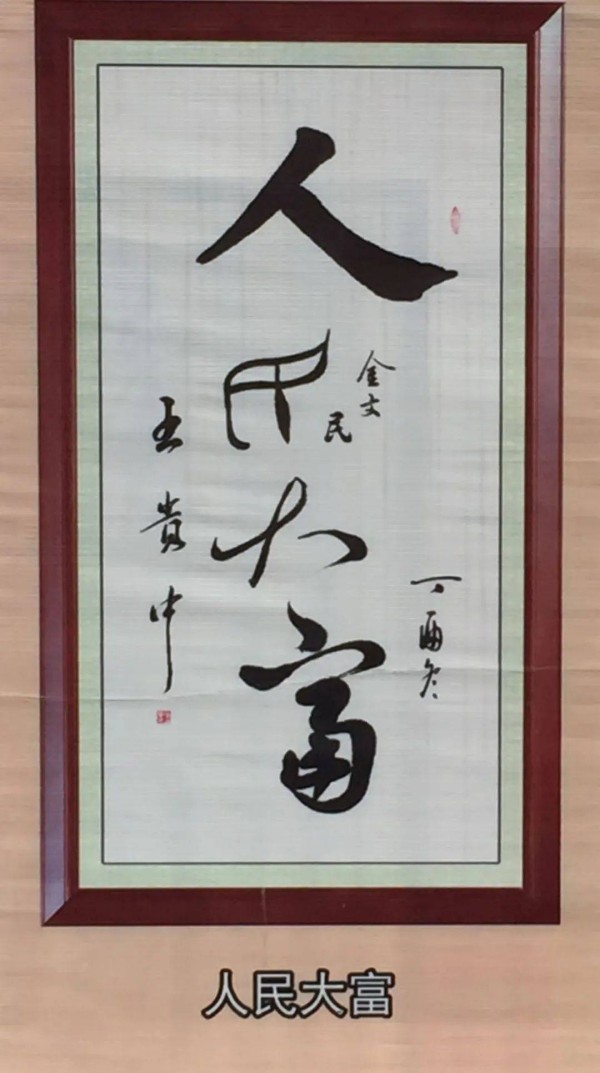 人民大富
金文
民
丁酉冬
王贵中
人民大富